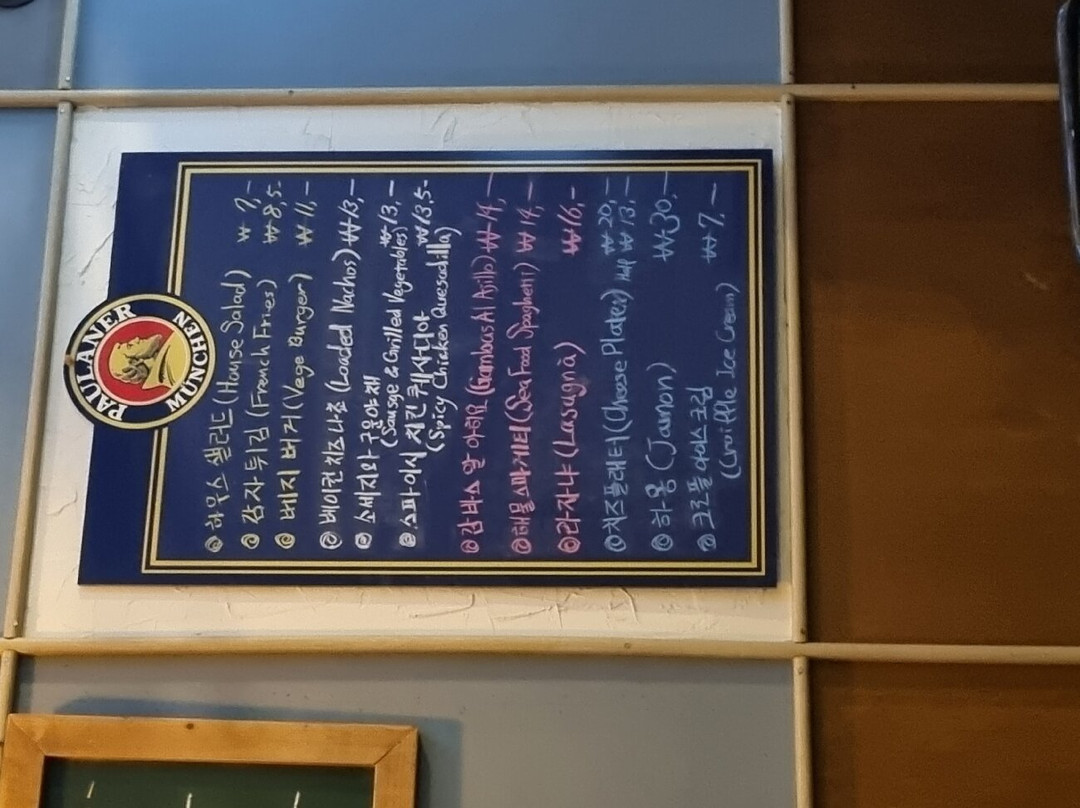 PAULANER
MÜNCHEN
하우스 샐러드 (House Salad) ₩ 7,-
감자튀김 (French Fries) ₩ 8,5-
베지 버거 (Vege Burger) ₩ 11,-
베이컨치즈나쵸 (Loaded Nachos) ₩13,-
소세지와 구운야채
(Sausge & Grilled Vegetables) ₩13,-
스파이시 치킨 퀘사디아 ₩13,5-
(Spicy Chicken Quesadilla)
감바스 알 아히요 (Gambas Al Ajillo) ₩14,-
해물스파게티 (Sea Food Spagheti) ₩14,-
라자냐 (Lasagnà) ₩16,-
치즈플래터 (Cheese Plater) ₩20,-
Half ₩13,-
하몽 (Jamon) ₩30,-
크로플아이스크림 ₩7,-
(Croiffle Ice Cream)